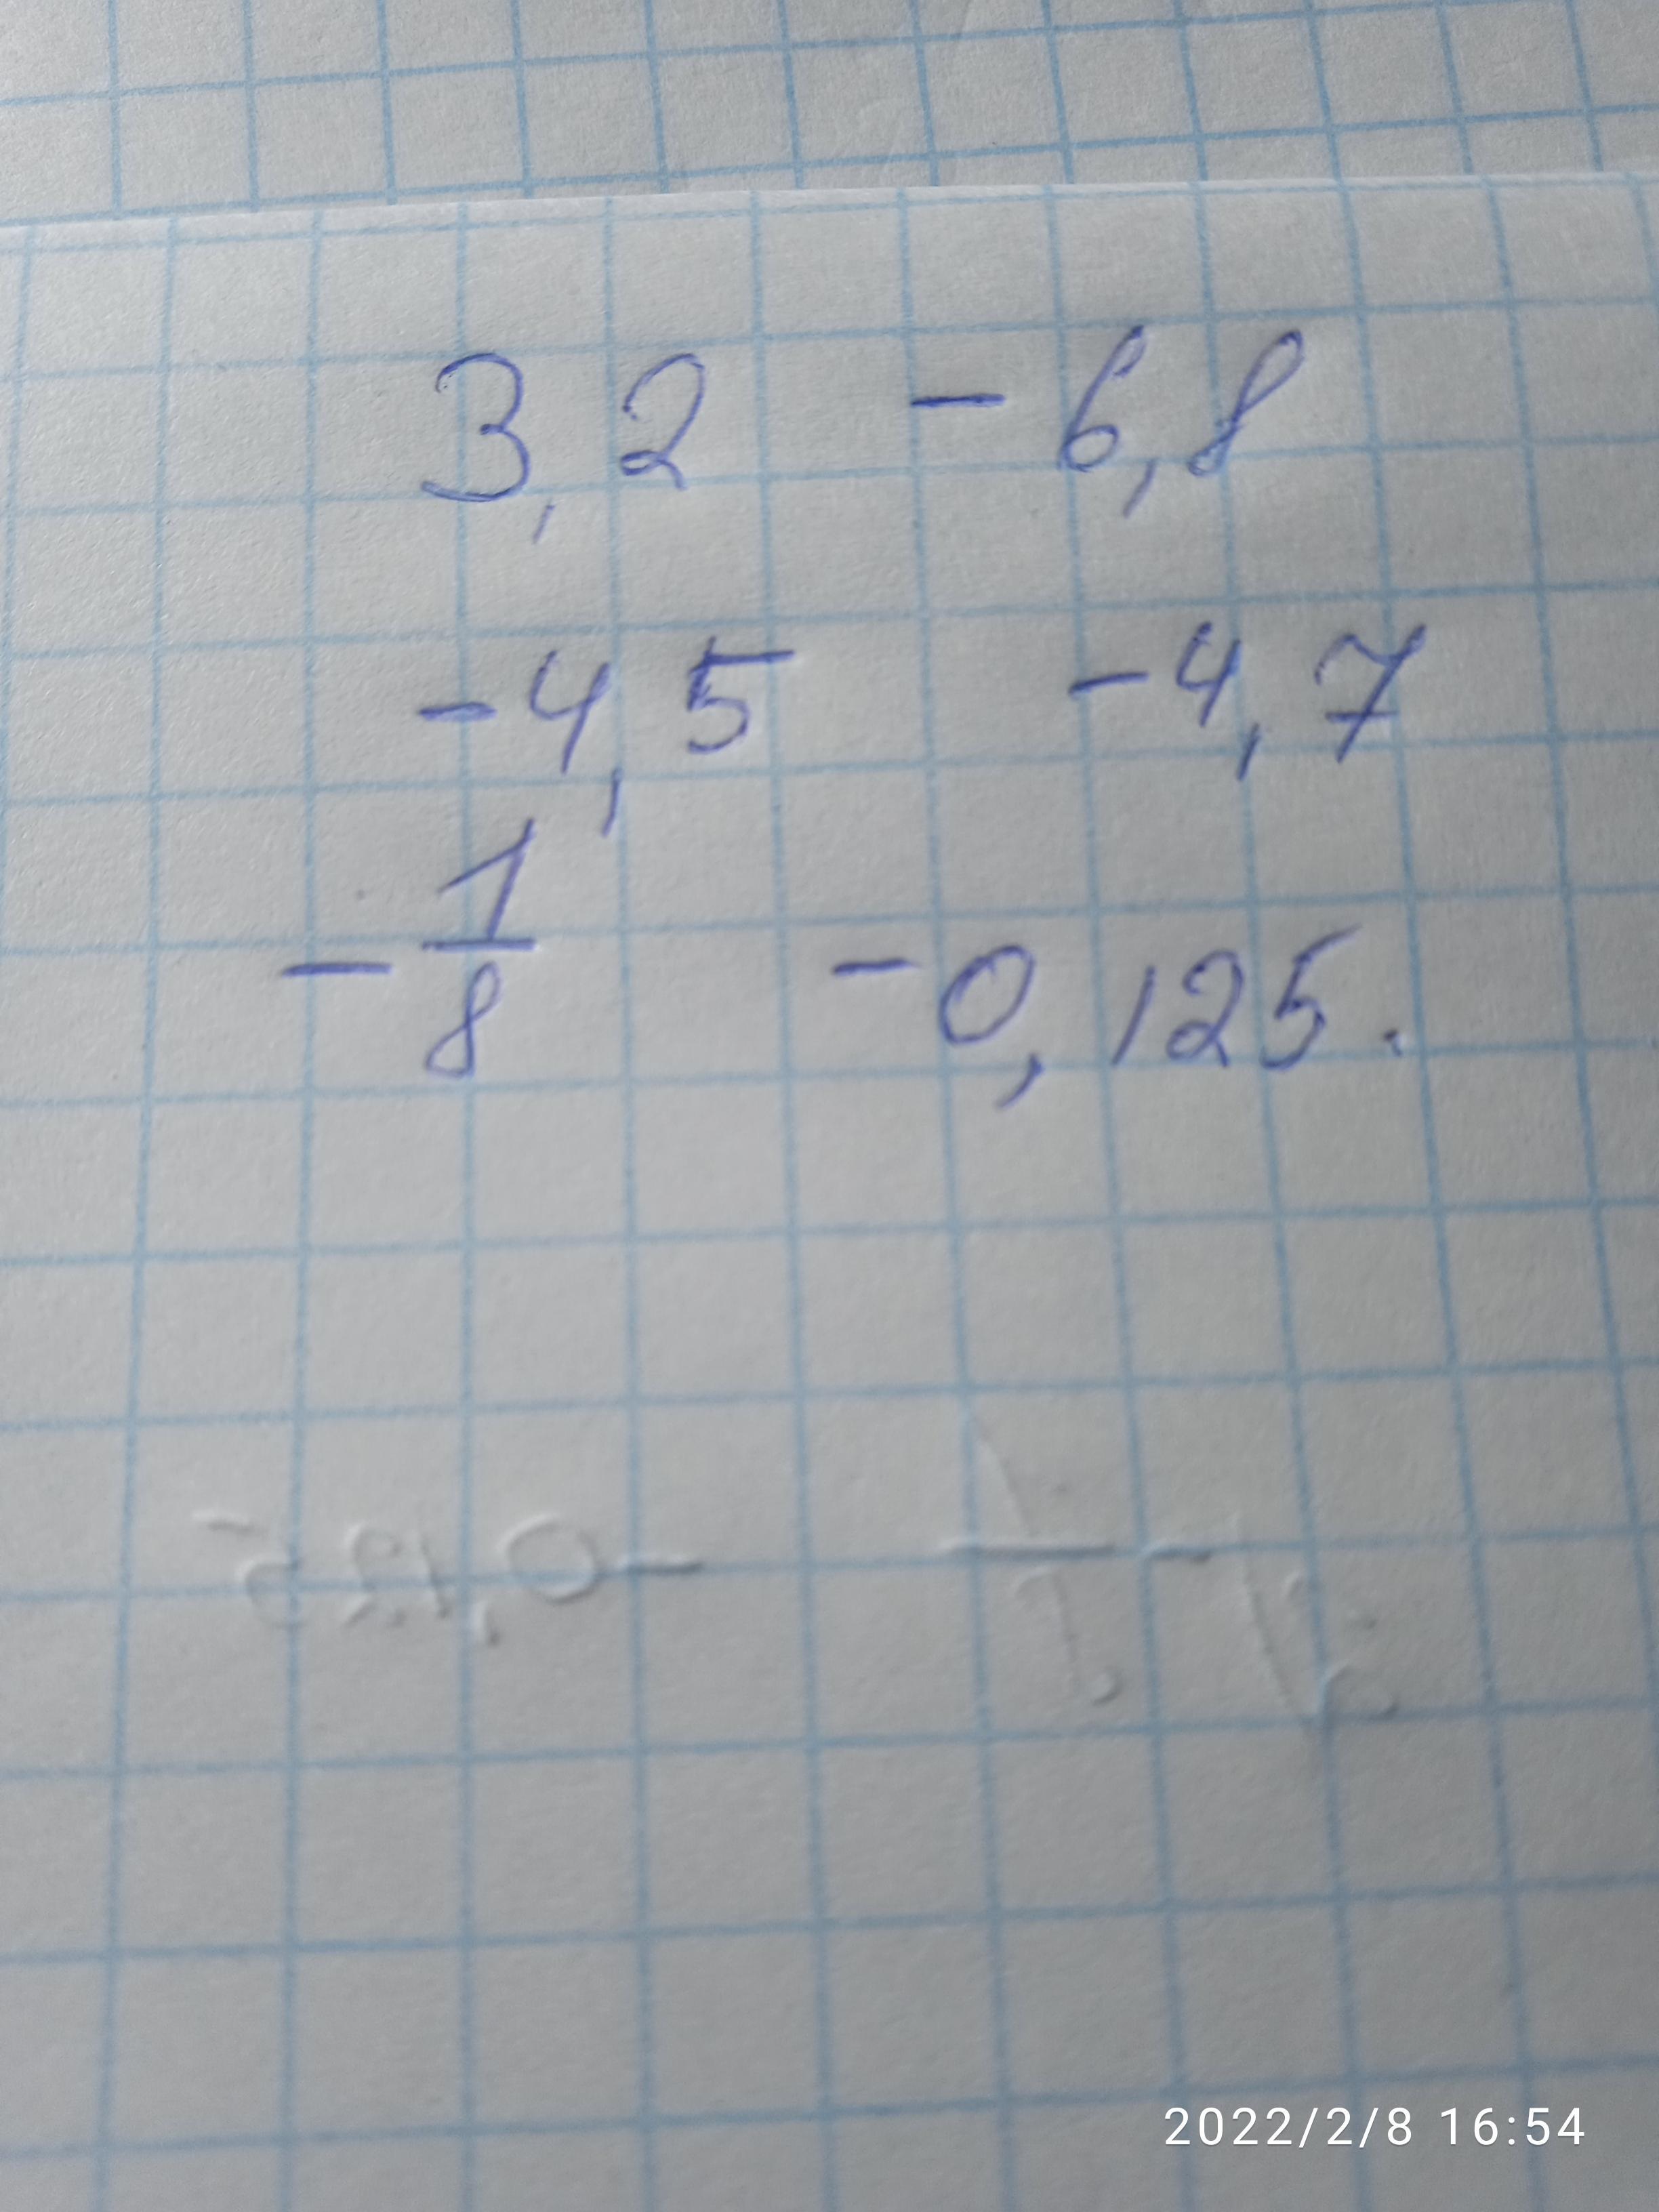 3,2 -6,8
-4,5 -4,7
-1/8 -0,125.
2022/2/8 16:54